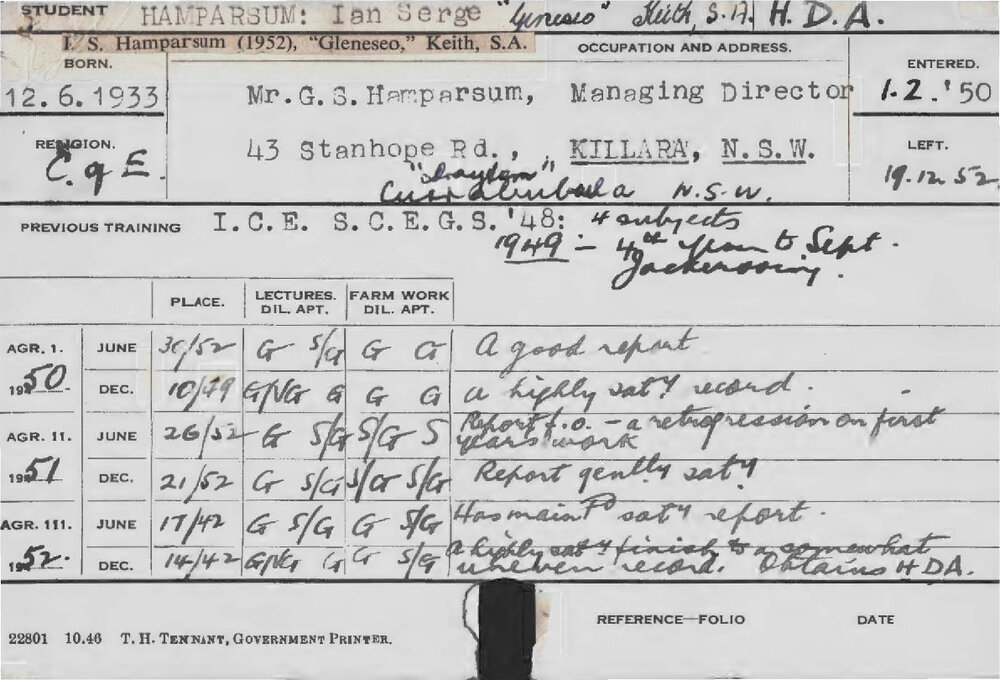 STUDENT HAMPARSUM: Ian Serge "Gleneseo" Keith, S.A. H.D.A.
I. S. Hamparsum (1952), "Gleneseo," Keith, S.A.
OCCUPATION AND ADDRESS.
BORN. ENTERED.
12.6.1933 Mr.G.S.Hamparsum, Managing Director 1.2.'50
RELIGION. LEFT.
C. of E. 43 Stanhope Rd., KILLARA, N.S.W. 19.12.52
Currabubula N.S.W.
PREVIOUS TRAINING I.C.E. S.C.E.G.S. '48: 4 subjects
1949 :- 4th year to Sept.
Jackerooing.
PLACE. LECTURES. DIL. APT. FARM WORK DIL. APT.
AGR. 1. JUNE 30/52 G S/G G G A good report
1950 DEC. 10/49 G/VG G G G a highly saty record.
AGR. 11. JUNE 26/52 G S/G S/G S Report f.o. - a retrogression on first years work
1951 DEC. 21/52 G S/G S/G S/G Report genlly saty
AGR. 111. JUNE 17/42 G S/G G S/G Has maintd saty report.
1952. DEC. 14/42 G/VG G G S/G A highly saty finish to a somewhat uneven record. Obtains HDA.
REFERENCE—FOLIO DATE
22801 10.46 T. H. TENNANT, GOVERNMENT PRINTER.